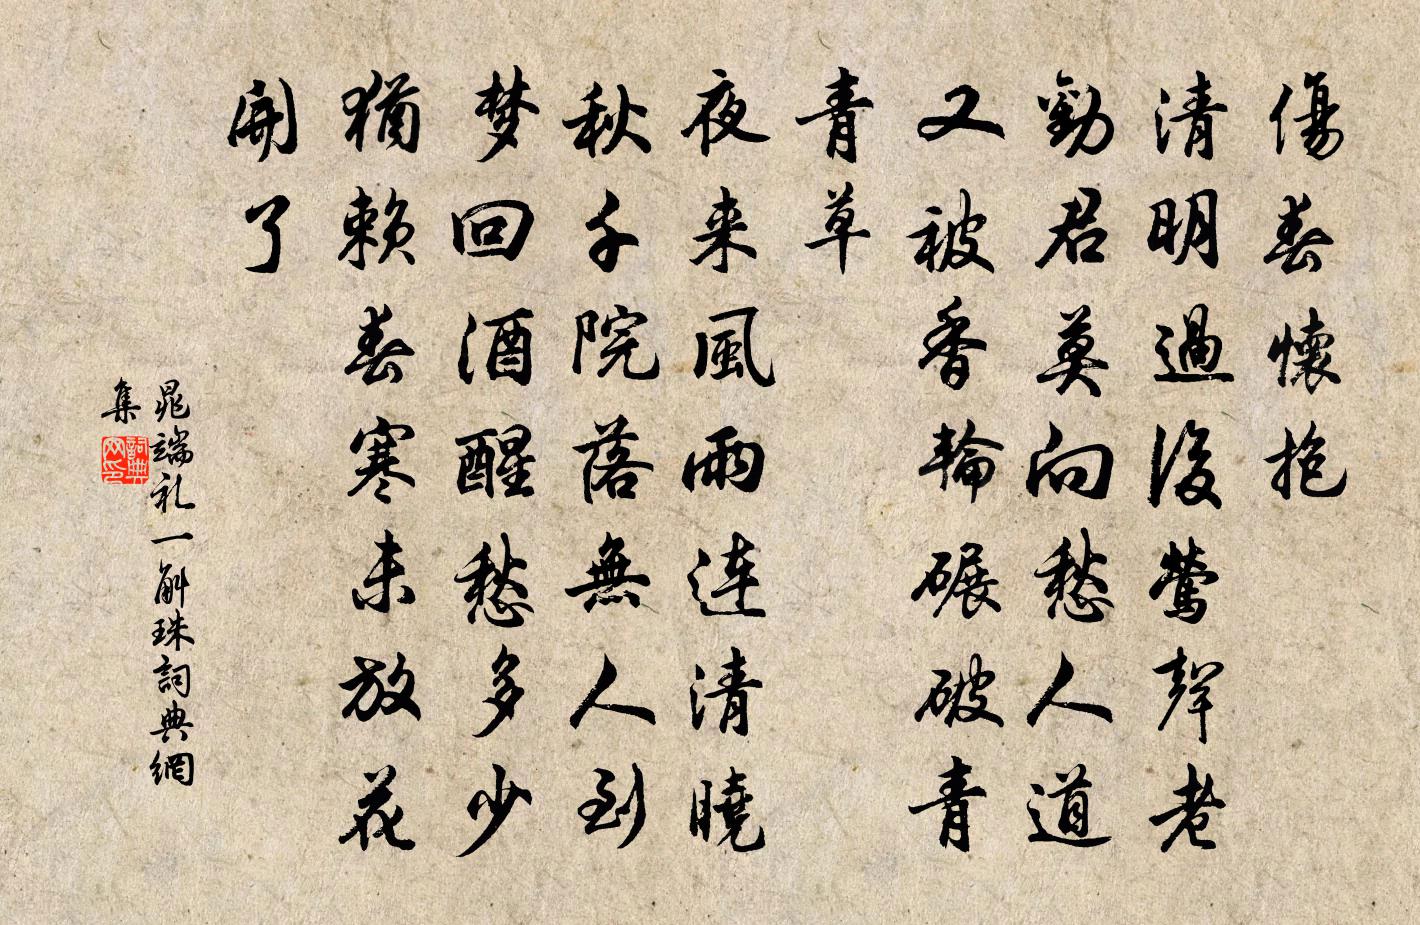 傷春懷抱
清明過後鶯聲老
勸君莫向愁人道
又被香輪碾破青
青草
夜来風雨連清曉
秋千院落無人到
梦回酒醒愁多少
猶賴春寒未放花
開了
晁端礼一斛珠詞典網
集
詞典
网印